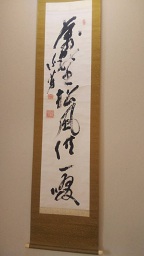 萬壑松風供一啜